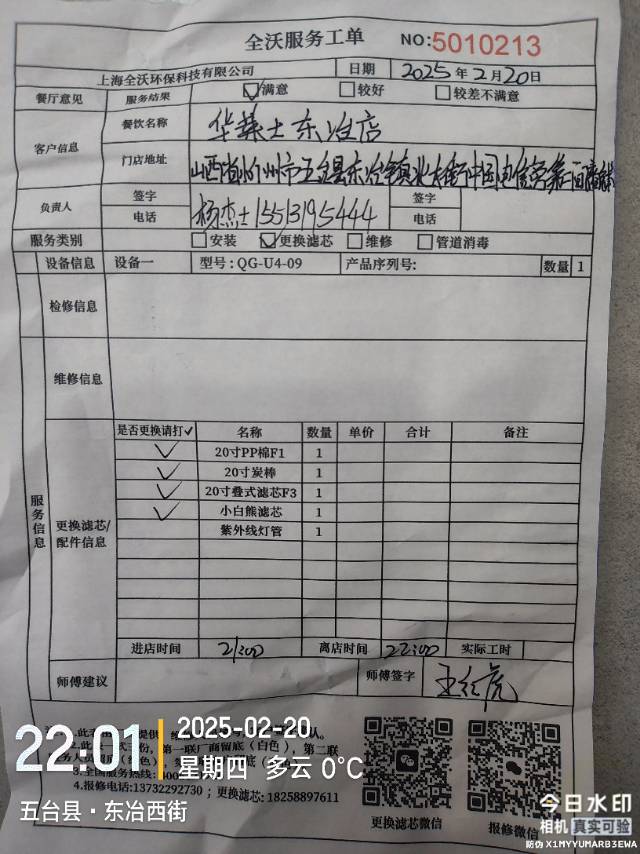 全沃服务工单 NO:5010213
上海全沃环保科技有限公司 日期 2025年2月20日
餐厅意见 服务结果 ☑满意 □较好 □较差不满意
客户信息 餐饮名称 华莱士东冶店
门店地址 山西省忻州市五台县东冶镇
负责人 签字 杨杰士 签字
电话 15513195444 电话
服务类别 □安装 ☑更换滤芯 □维修 □管道消毒
设备信息 设备一 型号:QG-U4-09 产品序列号: 数量 1
检修信息
维修信息
服务信息
更换滤芯/配件信息
是否更换请打✓ 名称 数量 单价 合计 备注
✓ 20寸PP棉F1 1
✓ 20寸炭棒 1
✓ 20寸叠式滤芯F3 1
✓ 小白熊滤芯 1
紫外线灯管 1
进店时间 21:00 离店时间 22:00 实际工时
师傅建议 师傅签字 王红虎
第一联厂商留底（白色），第二联
3.全国服务热线:
4.报修电话:13732292730 ; 更换滤芯:18258897611
更换滤芯微信 报修微信
22:01 2025-02-20
星期四 多云 0°C
五台县·东冶西街
今日水印
相机 真实可验
防伪 X1MYYUMARB3EWA